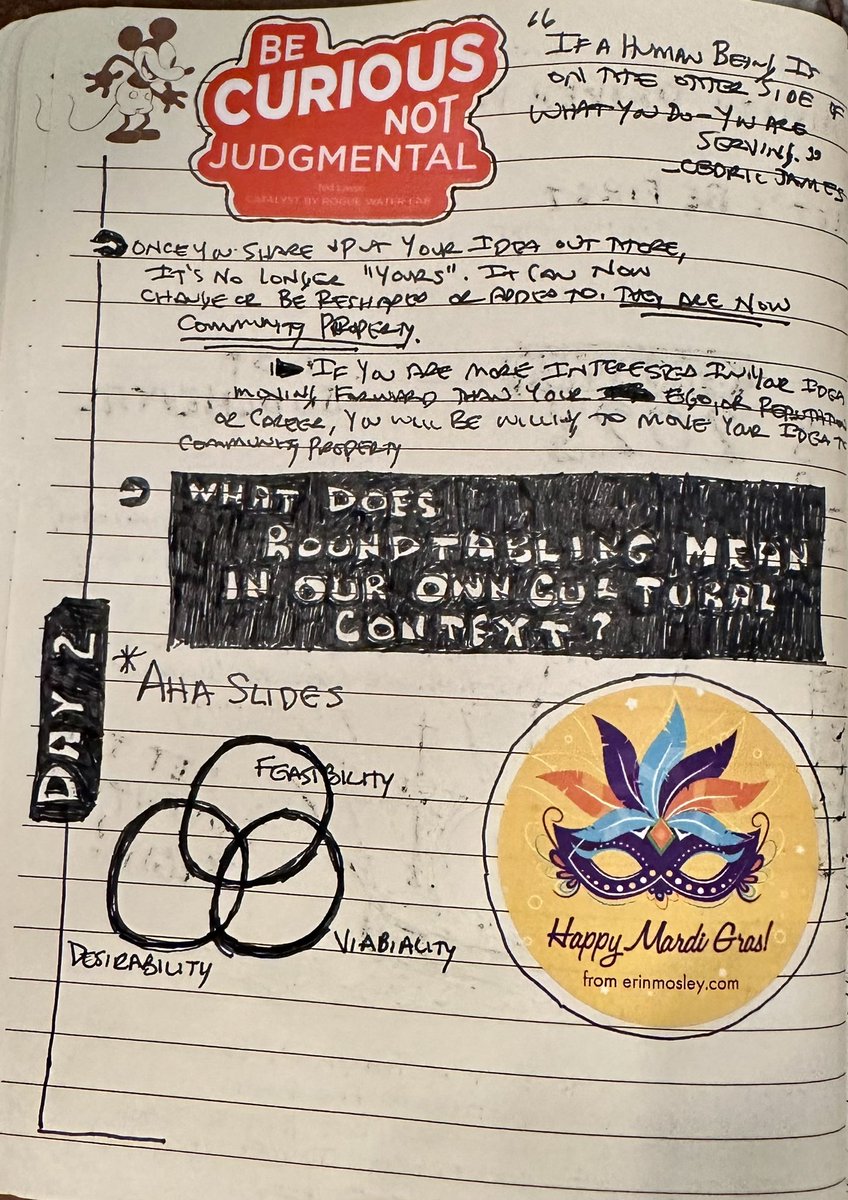 BE
CURIOUS
NOT
JUDGMENTAL
Ted Lasso
CATALYST BY ROGUE WATER LAB
"IF A HUMAN BEING IS
ON THE OTHER SIDE OF
WHAT YOU DO - YOU ARE
SERVING."
- CEDRIC JAMES
ONCE YOU SHARE & PUT YOUR IDEA OUT THERE,
IT'S NO LONGER "YOURS". IT CAN NOW
CHANGE OR BE RESHAPED OR ADDED TO. THEY ARE NOW
COMMUNITY PROPERTY.
IF YOU ARE MORE INTERESTED IN YOUR IDEA
MOVING FORWARD THAN YOUR EGO, OR REPUTATION
OR CAREER, YOU WILL BE WILLING TO MOVE YOUR IDEA TO
COMMUNITY PROPERTY
WHAT DOES
ROUNDTABLING MEAN
IN OUR OWN CULTURAL
CONTEXT?
DAY 2
* AHA SLIDES
FEASIBILITY
DESIRABILITY
VIABIALITY
Happy Mardi Gras!
from erinmosley.com